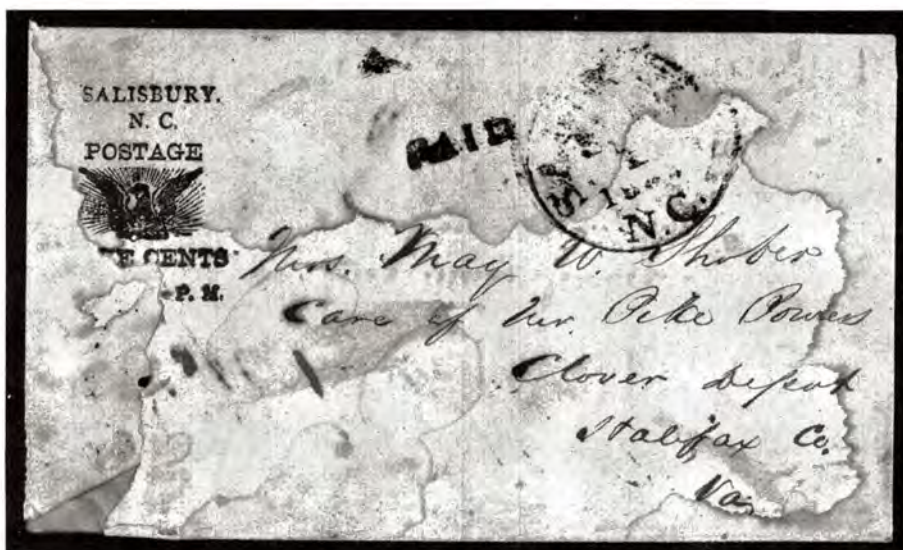 SALISBURY.
N. C.
POSTAGE
E CENTS
P. M.
PAID
N.C.
Mrs. May W. Shober
Care of Mr. Pike Powers
Clover Depot
Halifax Co.
Va.